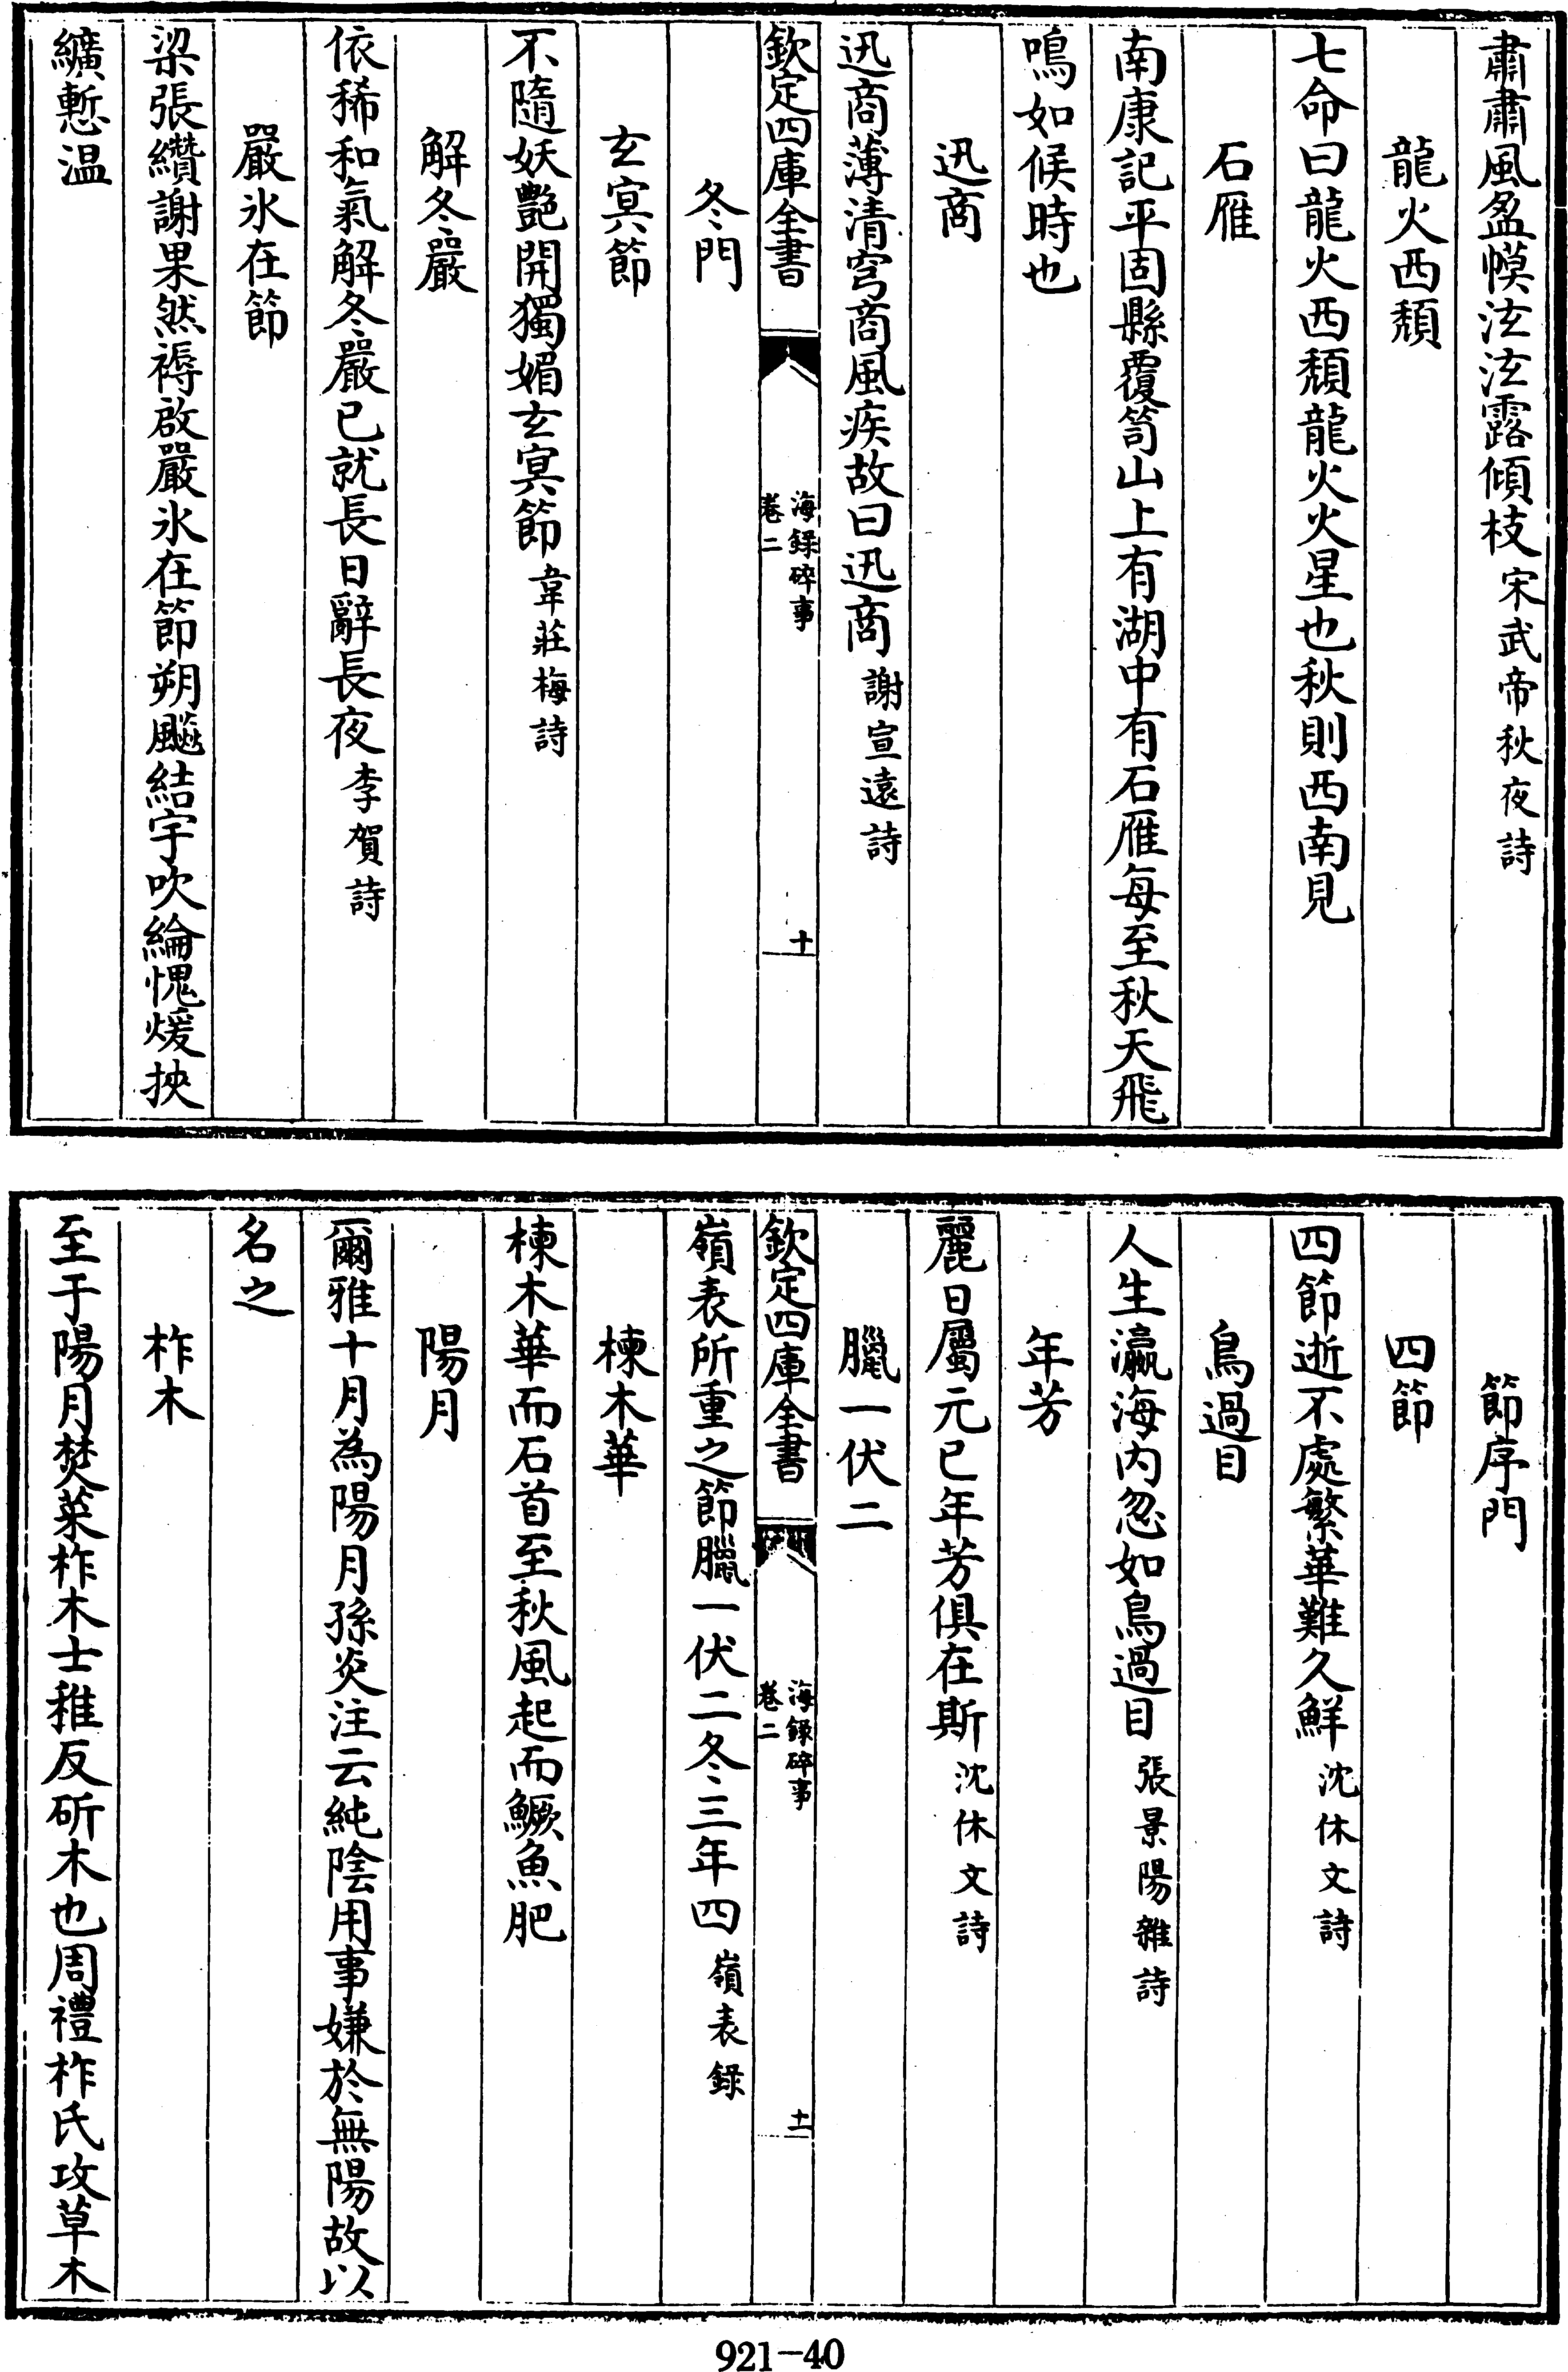 肅肅風盈幙泫泫露傾枝宋武帝秋夜詩
龍火西頽
七命曰龍火西頽龍火火星也秋則西南見
石雁
南康記平固縣覆笥山上有湖中有石雁每至秋天飛
鳴如候時也
迅商
迅商薄清穹商風疾故曰迅商謝宣遠詩
欽定四庫全書
海録碎事
卷二
十
冬門
玄冥節
不隨妖艷開獨媚玄冥節韋莊梅詩
解冬嚴
依稀和氣解冬嚴已就長日辭長夜李賀詩
嚴氷在節
梁張纘謝果然褥啟嚴氷在節朔飈結宇吹綸愧煖挾
纊慙温
節序門
四節
四節逝不處繁華難久鮮沈休文詩
鳥過目
人生瀛海内忽如鳥過目張景陽雜詩
年芳
麗日屬元已年芳俱在斯沈休文詩
臘一伏二
欽定四庫全書
海録碎事
卷二
十一
嶺表所重之節臘一伏二冬三年四嶺表録
楝木華
楝木華而石首至秋風起而鱖魚肥
陽月
爾雅十月為陽月孫炎注云純陰用事嫌於無陽故以
名之
柞木
至于陽月焚菜柞木士稚反斫木也周禮柞氏攻草木
921-40